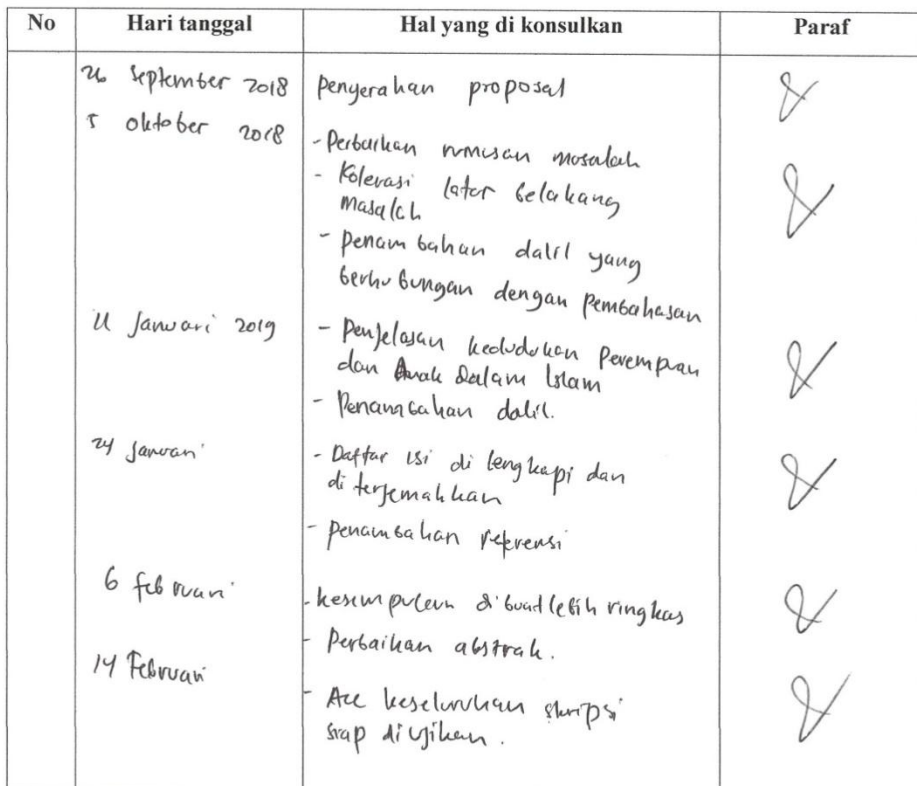 No Hari tanggal Hal yang di konsulkan Paraf
26 September 2018 Penyerahan proposal
5 oktober 2018
- Perbaikan rumusan masalah
- Kolerasi latar belakang
masalah
- penambahan dalil yang
berhubungan dengan pembahasan
Januari 2019 - Penjelasan kedudukan Perempuan
dan Anak dalam Islam
- Penambahan dalil.
24 Januari - Daftar isi di lengkapi dan
di terjemahkan
- penambahan reprensi
6 februari - kesimpulan di buat lebih ringkas
- Perbaikan abstrak.
14 Februari
- Acc keseluruhan skripsi
siap di ujikan.